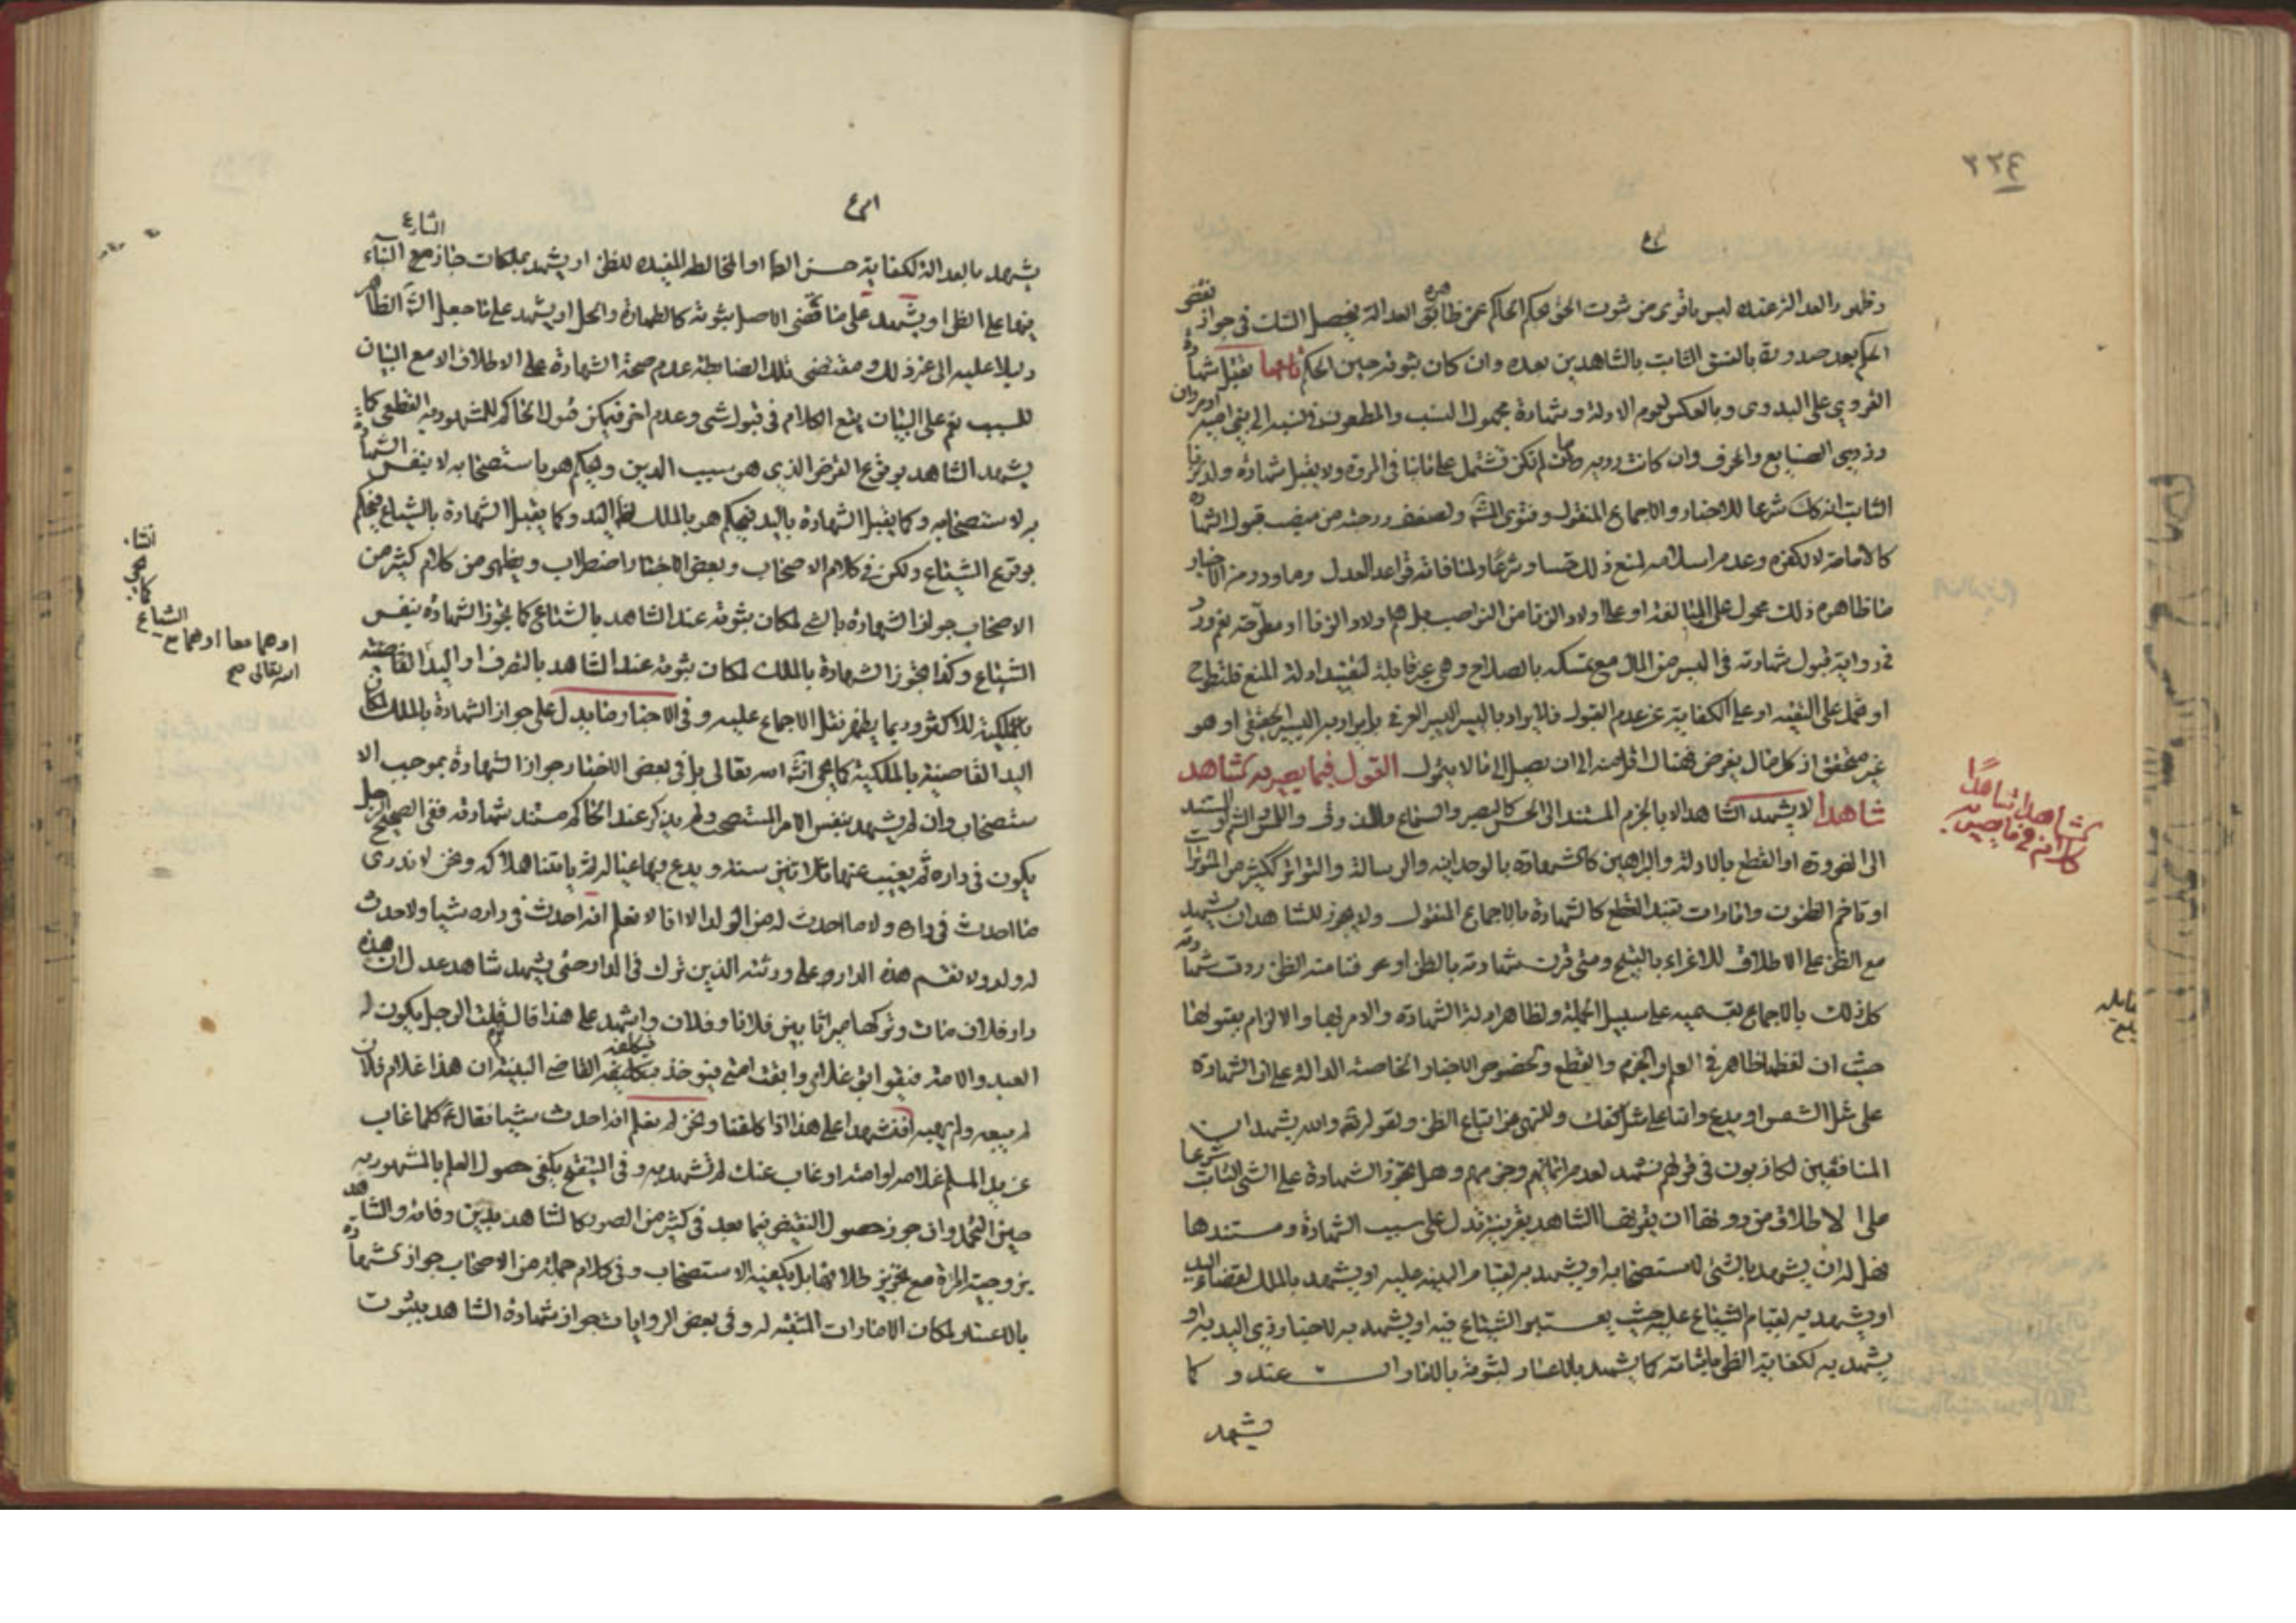 ٢٢٤
وظهور العدالة عنده ليس باقوى من ثبوت الحق بحكم الحاكم عن ظاهر العدالة فيحصل الشك في جواز نقض
الحكم بعد صدوره بالفسق الثابت بالشاهدين بعده وان كان ثبوته حين الحكم تقبل شهادة
القروي على البدوي وبالعكس لعموم الادلة وشهادة مجهول النسب والمطعون في نسبه
وذوي الصنايع والحرف وان كانت ردية ما لم تكن تشتمل على ما ينافي المروة ولا يقبل شهادة ولد الزنا
الثابت انه كك شرعا للاخبار والاجماع المنقول وفتوى ولضعف درجته من منصب قبول الشهادة
كالامامة لا لكفره وعدم اسلامه لمنع ذلك حسا وشرعا ولمنافاته قواعد العدل وما ورد من الاخبار
مما ظاهره ذلك محمول على المبالغة او على اولاد الزنا من النواصب بل هم اولاد الزنا او مطرحة نعم ورد
في رواية قبول شهادته في اليسير من المال مع تمسكه بالصلاح وهي غير قابلة لتقييد ادلة المنع فلتطرح
او تحمل على التقية او على الكناية عن عدم القبول فلا يراد باليسير اليسير العرفي بل يراد به اليسير الحقيقي او هو
غير متحقق اذ كل مال يفرض فهناك اقل منه الى ان يصل الى ما لا يتمول القول فيما يصير به الشاهد
شاهدا لا يشهد الشاهد الا بالجزم المستند الى الحس كالبصر والسماع والذوق واللمس والشم او المستند
الى الضرورة او القطع بالادلة والبراهين كالشهادة بالوحدانية والرسالة والتواتر ككثير من المتواترات
او تاخم الظنون وامارات تفيد القطع كالشهادة بالاجماع المنقول ولا يجوز للشاهد ان يشهد
مع الظن على الاطلاق للاغراء بالقبيح ومتى قرن شهادته بالظن او عرفنا منه الظن ردت شهادته
كل ذلك بالاجماع بقسميه على سبيل الجملة ولظاهر ادلة الشهادة والامر بها والالزام بقبولها
حيث ان لفظها ظاهر في العلم والجزم والقطع ولخصوص الاخبار الخاصة الدالة على ان الشهادة
على مثل الشمس او يدع واتنا على مثل كفك وللنهي عن اتباع الظن ولقوله تع والله يشهد ان
المنافقين لكاذبون في قولهم نشهد لعدم ايمانهم وجزمهم وهل تجوز الشهادة على الشيء الثابت شرعا
على الاطلاق من دونها ان يقرنها الشاهد بقرينة تدل على سبب الشهادة ومستندها
فهل له ان يشهد بالشيء لاستصحابه او يشهد به لقيام البينة عليه او يشهد بالملك لقضاء اليد
او يشهد به لقيام الشياع عليه حيث يعتبر الشياع فيه او يشهد به لاخبار ذي اليد به او
يشهد به لكفاية الظن باثباته كما يشهد بالاعسار لثبوته بالامارات عنده و كما
يشهد
كلام في ما يصير به
الشاهد شاهدا
بلغ
يشهد بالعدالة لكفاية حسن الظاهر او المخالطة المفيدة للظن او يشهد بملكات جاز مع البناء
فيها على الظن او يشهد على ما قضى الاصل بثبوته كالطهارة والحل او يشهد على ما جعل الشارع الظاهر
دليلا عليه الى غير ذلك ومقتضى تلك الضابطة عدم صحة الشهادة على الاطلاق الا مع البيان
للسبب نعم على البيان يقع الكلام في قبول شيء وعدم اخر فيمكن قبول الحاكم للمشهود به القطعي كما
يشهد الشاهد بوقوع القرض الذي هو سبب الدين ويحكم هو باستصحابه لا بنفس الشهادة
به لاستصحابه وكما يقبل الشهادة باليد فيحكم هو بالملك لظاهر اليد وكما يقبل الشهادة بالشياع فيحكم
بوقوع الشياع ولكن في كلام الاصحاب وبعض الاخبار اضطراب ويظهر من كلام كثير من
الاصحاب جواز الشهادة بالشيء لمكان ثبوته عند الشاهد بالشياع كما يجوز الشهادة بنفس
الشياع وكذا تجوز الشهادة بالملك لمكان ثبوته عند الشاهد بالتصرف او اليد القاضية
بالملكية للاكثر وربما يظهر نقل الاجماع عليه وفي الاخبار ما يدل على جواز الشهادة بالملك لمكان
اليد القاضية بالملكية كما يجيء انشاء الله تعالى بل في بعض الاخبار جواز الشهادة بموجب الا
ستصحاب وان لم يشهد بنفس الامر المستصحب ولم يذكر عند الحاكم مستند شهادته ففي الصحيح الرجل
يكون في داره ثم يغيب عنها ثلاثين سنة ويدع فيها عياله ثم ياتينا هلاكه ونحن لا ندري
ما احدث في داره ولا ما احدث له من الولد الا انا لا نعلم انه احدث في داره شيئا ولا حدث
له ولد ولا تقسم هذه الدار على ورثته الذين ترك في الدار حتى يشهد شاهد عدل ان هذه
دار فلان مات وتركها ميراثا بين فلان وفلان وا يشهد على هذا قال نعم قلت الرجل يكون له
العبد والامة فيقول ابق غلامي وابقت امتي فيؤخذ فيكلفه القاضي البينة ان هذا غلام فلان
لم يبعه ولم يهبه افنشهد على هذا اذا كلفنا ونحن لم نعلم انه احدث شيئا فقال ع كلما غاب
عن يد المسلم غلامه او امته او غاب عنك لم تشهد به وفي التنقيح يكفي حصول العلم بالمشهود به
حين التحمل وان جوز حصول النقيض فيما بعد في كثير من الصور كالشاهد بدين وفاته والشاهد
بزوجية المراة مع تجويز طلاقها بل يكفيه الاستصحاب وفي كلام جملة من الاصحاب جواز شهادة
بالاعسار لمكان الامارات المفيدة له وفي بعض الروايات جواز شهادة الشاهد بثبوت
او هما معا او هما مع الشياع
كما يجيء انشاء الله تعالى صح